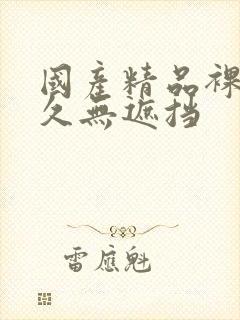 國産精品裸
久無遮挡
雷應魁